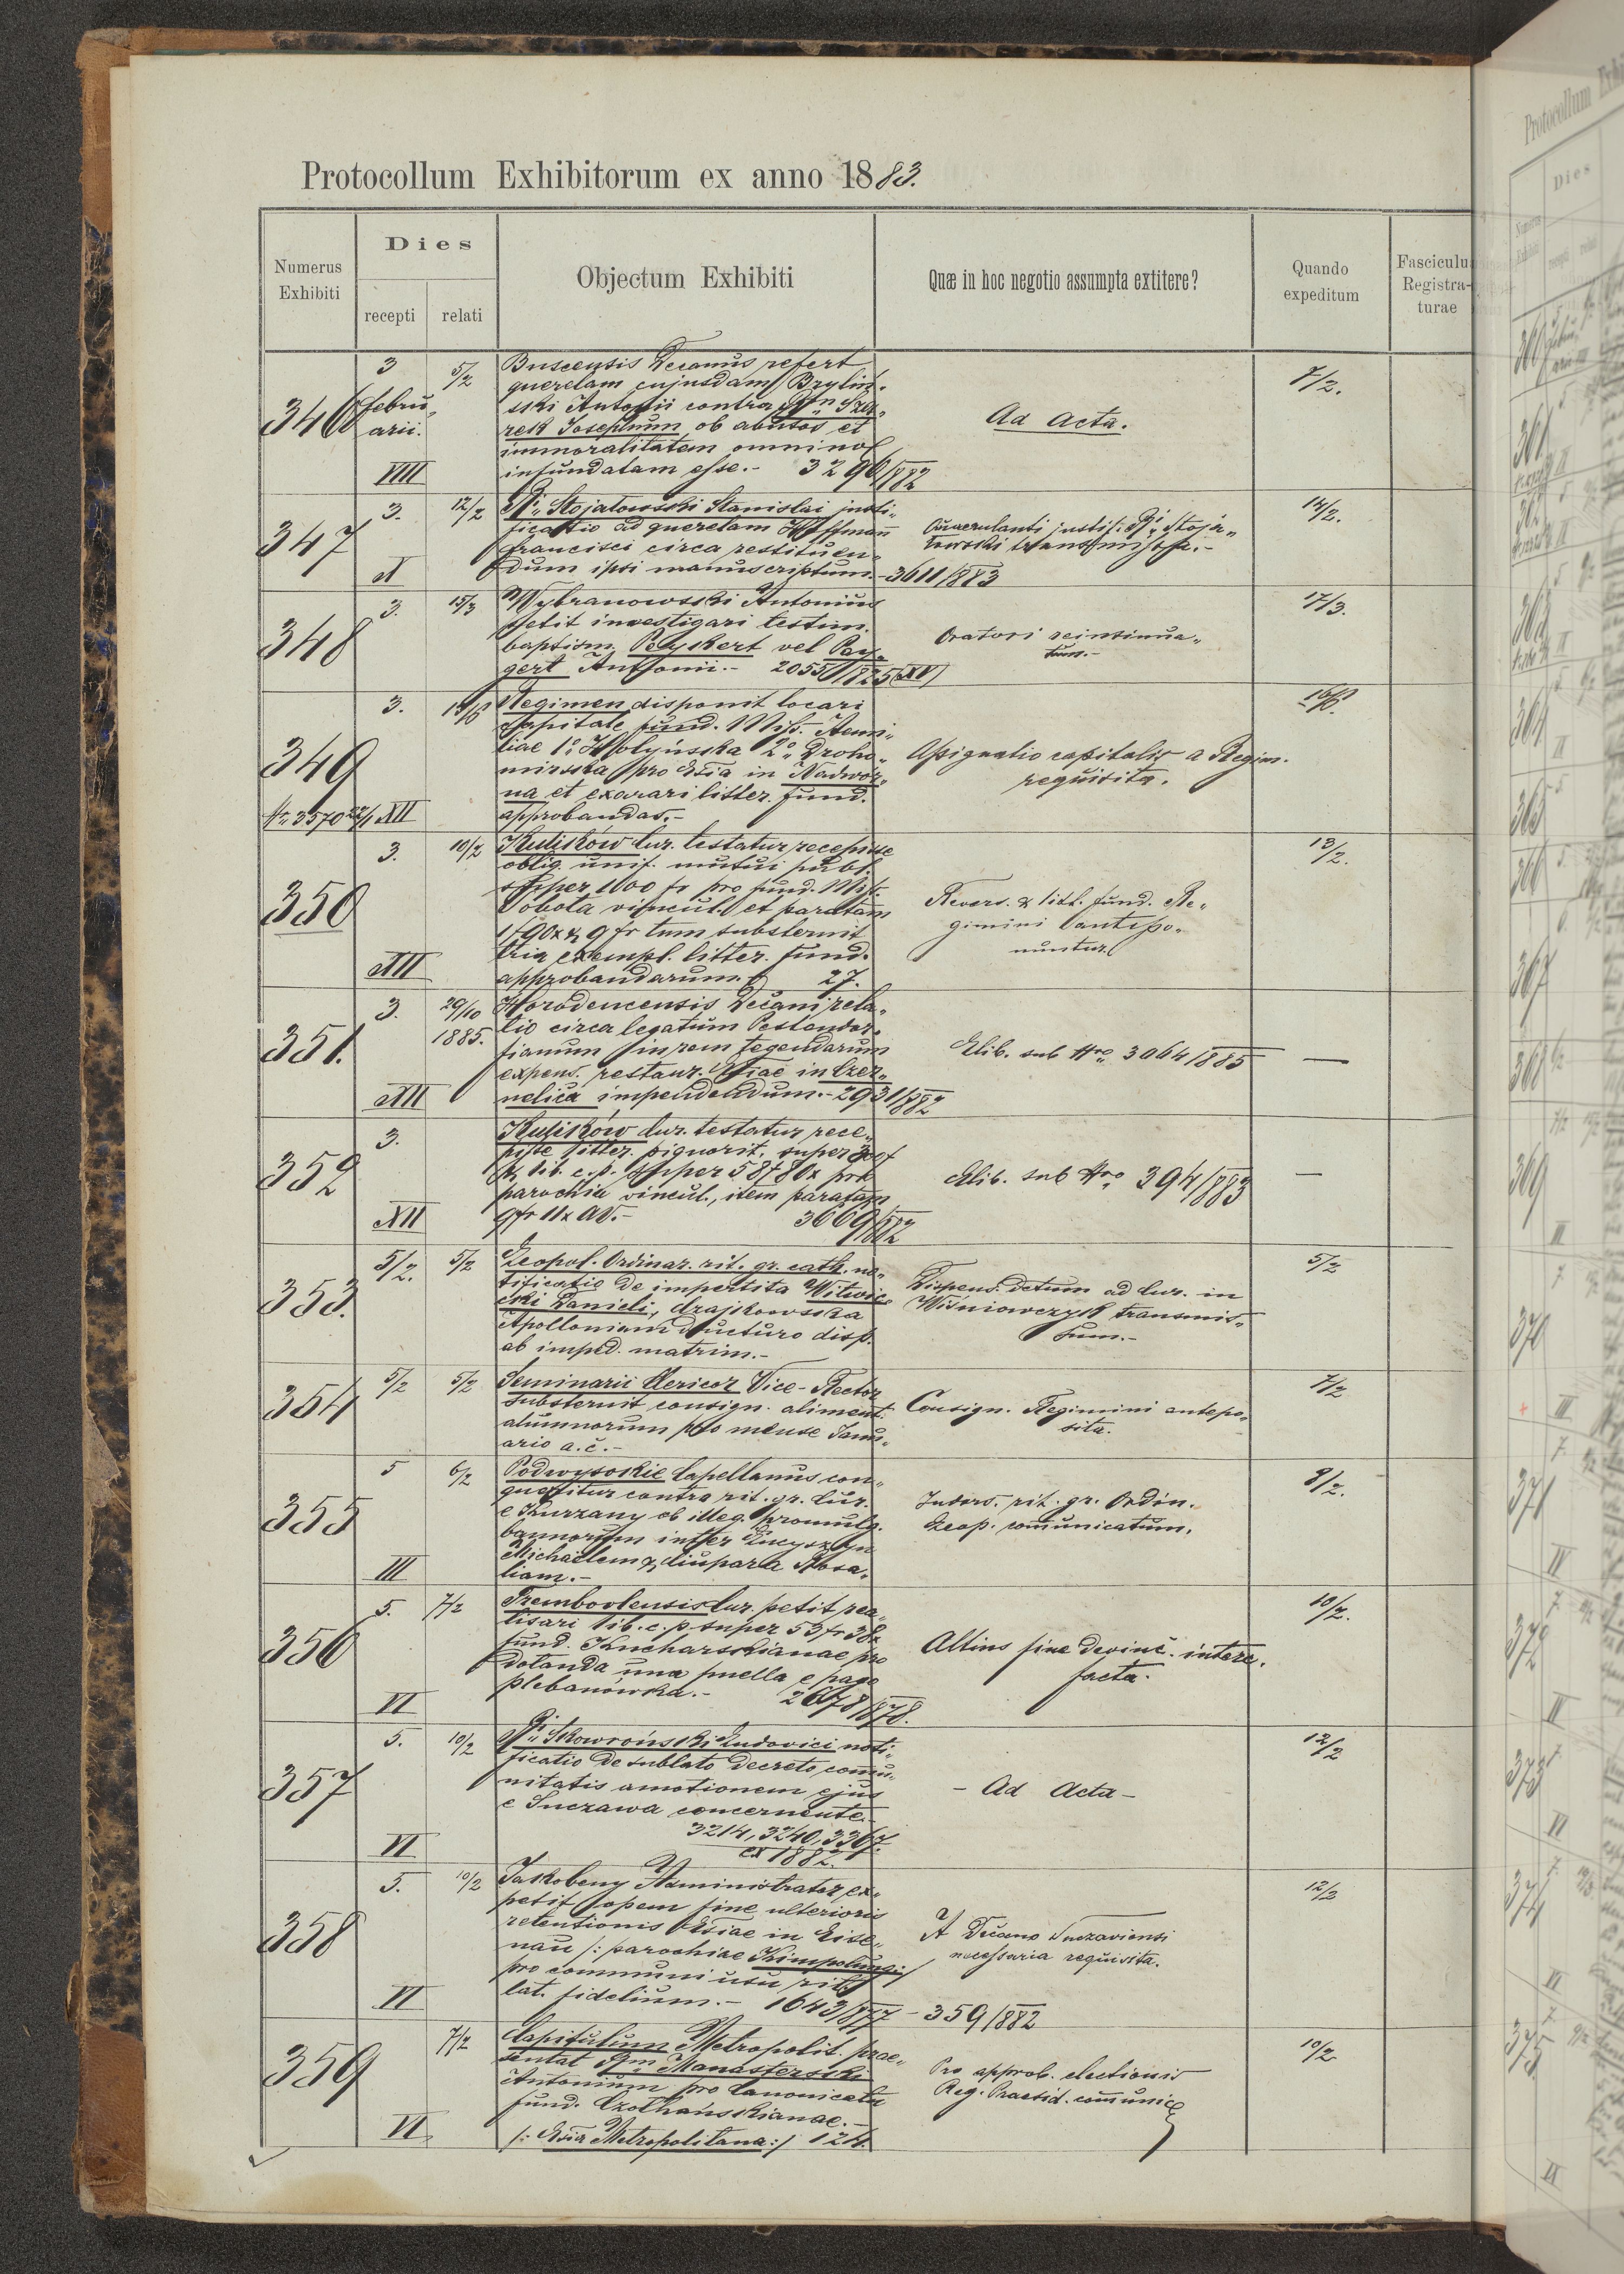 Protocollum Exhibitorum ex anno 1883.
Numerus Exhibiti
Dies
recepti
relati
Objectum Exhibiti
Quæ in hoc negotio assumpta extitere?
Quando expeditum
Fasciculu
Registra-
turae
346
3
febru„
arii.
VIII
5/2
Buscensis Decanus refert
querelam cujusdam Bryliń-
ski Antonii contra
rek Josephum ob abusus et
immoralitatem omnino
infundatam esse.- 3296/882
Ad acta.
7/2.
347
3.
X
12/2
Stojałowski Stanislai justi„
ficatio ad querelam Hoffmann
Francisci circa restituen„
dum ipsi manuscriptum.- 3611/883
Querulanti justif. Stoja„
łowski transmissa.-
14/2.
348
3.
15/3
Wybranowski Antonius
petit investigari testim.
baptism. Peykert vel Pay„
gert Antonii.- 2055/1825 (XV)
Oratori reinsinua„
tum.-
17/3.
349
Nr 3570
XII
3.
Regimen disponit locari
capitale fund. Miss. Aemi„
liae 1o Hołyńska 2o Droho„
mirecka pro Eccla in Nadwór„
na et exarari litter. fund.
approbandas.-
Assignatio capitalis a Regim.
requisita.
350
3.
XII
10/2
Kulików Cur. testatur recepisse
oblig. unif. mutui publ.
super 1100 fr pro fund. Miss.
Sobota vincul. et paratam
1f 90x & 9 fr tum substernit
tria exempl. litter. fund.
approbandarum 27.
Revers. & litt. fund. Re„
gimini antepo„
nuntur.
13/2.
351.
3.
XII
29/10
1885.
Horodencensis Decani rela„
tio circa legatum
in rem tegendarum
expens. restaur. Eccliae in Czer„
nelica impendendum.- 2931/882
Elib. sub Nro 3064/885
—
352
3.
XII
Kulików Cur. testatur rece„
pisse litter. pignorit. super 300f
& lib. c. p. super 58f 80x pro
parochia vincul., item paratam
9fr 11x AV.- 3669/882
Elib. sub Nro 394/883
—
353.
5/2.
5/2
Leopol. Ordinar. rit. gr. cath. no„
tificatio de impertita Witwic„
cki Danieli,
Apolloniam ducturo disp.
ab imped. matrim.-
Dispens. datum ad Cur. in
Wiśniowczyk transmis„
sum.-
5/2
354
5/2
5/2
Seminarii Clericor Vice-Rector
substernit consign. aliment.
alumnorum pro mense Janu„
ario a. c.-
Consign. Regimini antepo„
sita.
7/2
355
5
III
6/2
Podwysokie Capellanus con„
queritur contra rit. gr. Cur.
e Kurzany ob illeg. promulg.
bannorum inter
Michaelem & Ciupara Rosa„
liam.-
Indors. rit. gr. Ordin.
Leop. communicatum.
8/2.
356
5.
VI
7/2
Trembovlensis Cur. petit rea„
lisari lib. c. p. super 53fr 38x
fund. Kucharskianae pro
dotanda una puella e pago
plebanówka.- 2678/878.
Altius fine devinc. interc.
facta.
10/2.
357
5.
VI
10/2
Skowroński Ludovici noti„
ficatio de sublato decreto commu„
nitatis amotionem ejus
e Suczawa concernente.
3214, 3240, 3367.
ex 1882.
- Ad Acta -
12/2
358
5.
VI
10/2
Jakobeny Administrator ex„
petit opem fine ulterioris
retentionis Eccliae in Eise„
nau /: parochiae Kimpolung:/
pro communi usu rit.
lat. fidelium.- 1643/877 - 359/882
A Decano Suczaviensi
necessaria requisita.
12/2
359
VI
7/2
Capitulum Metropolit. prae„
sentat Manasterski
Antonium pro Canonicatu
fund. Czołhańskianae.-
/: Eccla Metropolitana:/ 124.
Pro approb. electionis
Reg. Praesid. communic
10/2